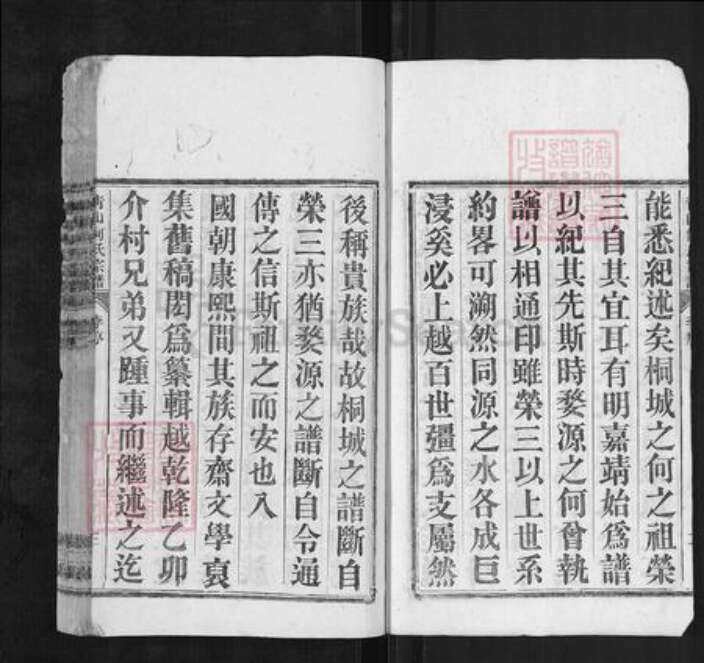 能悉紀述矣桐城之何之祖榮
三自其宜耳有明嘉靖始爲譜
以紀其先斯時婺源之何曾執
譜以相通印雖榮三以上世系
約畧可溯然同源之水各成巨
浸奚必上越百世彊爲支屬然
後稱貴族哉故桐城之譜斷自
榮三亦猶婺源之譜斷自令通
傳之信斯祖之而安也入
國朝康熙間其族存齋文學裒
集舊稿閎爲纂輯越乾隆乙卯
介村兄弟又踵事而繼述之迄
山何氏宗譜